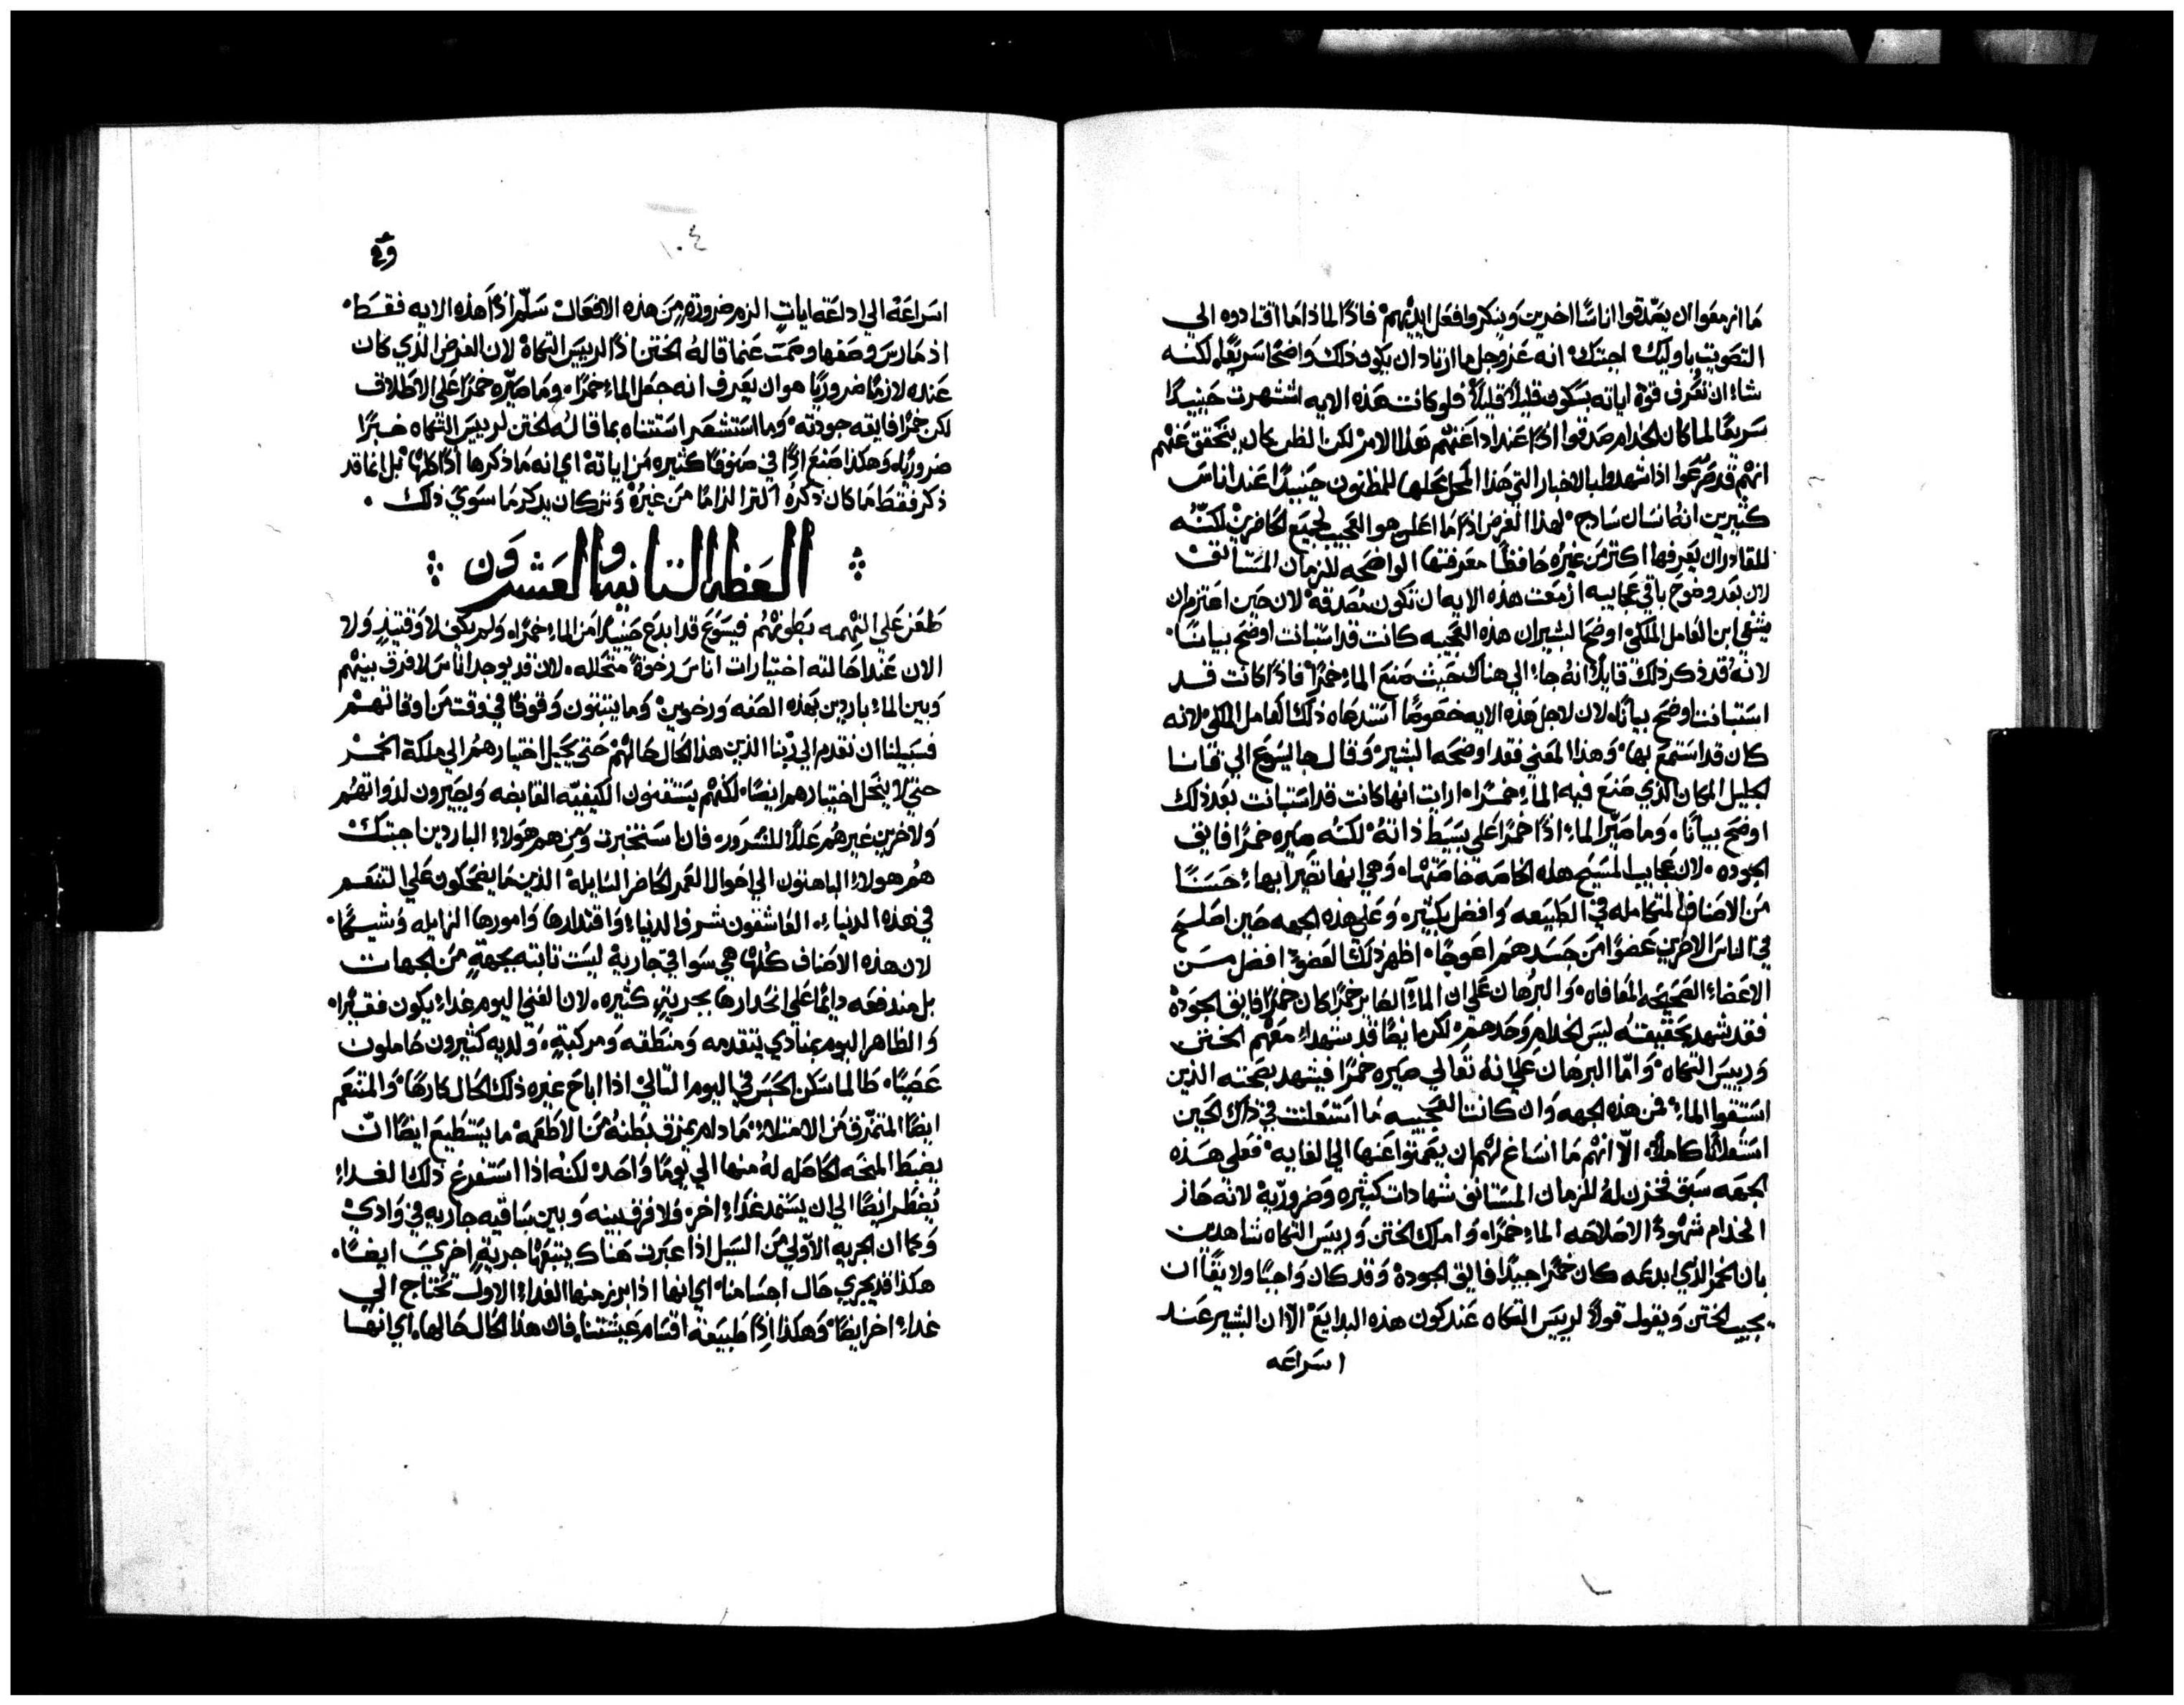 ما ازمعوا ان يصدقوا اناسًا اخرين وينكروا فعل ايديهم فاذًا لماذا ما اقتادوه الي
التصويت باوليك اجبتك انه عز وجل ما اراد ان يكون ذلك واضحًا سريعًا لكنه
شاء ان تعرف قوة اياته بسكون قليلًا قليلًا فلو كانت هذه الايه اشتهرت حينيدًا
سريعًا لما كان الخدام صدقوا اذًا عند اذاعتهم هذا الامر لكن الظن كان يتحقق عنهم
انهم قد صرعوا اذا شهدوا بالاخبار التي هذا المحل محلها للمظنون حينيدًا عند اناس
كثيرين انه انسان سادج لهذا الغرض اذًا ما اعلن هو العجيب لجميع الحاضرين لكنه
للقادر ان يعرفها اكثر من غيره حافظًا معرفتها الواضحه للزمان المستانف
لان بعد وضوح باقي عجايبه ازمعت هذه الايه ان تكون مصدقه لان حين اعتزم ان
يشفي ابن العامل الملكي اوضح البشير ان هذه العجيبه كانت قد استبانت اوضح بيانًا
لانه قد ذكر ذلك قايلًا انه جاء الي هناك حيث صنع الماء خمرًا فاذًا كانت قد
استبانت اوضح بيانًا لان لاجل هذه الايه خصوصًا استدعاه ذلك العامل الملكي لانه
كان قد استمع بها وهذا المعني فقد اوضحه البشير وقال جا يسوع الي قانا
الجليل المكان الذي صنع فيه الماء خمرًا ارات انها كانت قد استبانت بعد ذلك
اوضح بيانًا وما صير الماء اذًا خمرًا علي بسيط ذاته لكنه صيره خمرًا فايق
الجوده لان عجايب المسيح هذه الخاصه خاصتها وهي انها تصير ابها حسنًا
من الاصناف المتكامله في الطبيعه وافضل بكثير وعلي هذه الجهه حين اصلح
في الناس الاخرين عضوًا من جسدهم اعوجًا اظهر ذلك العضو افضل من
الاعضاء الصحيحه المعافاه والبرهان علي ان الماء الصاير خمرًا كان خمرًا فايق الجوده
فقد شهد بحقيقته ليس الخدام وحدهم لكن ايضًا قد شهد معهم الختن
وريس التكاه واما البرهان علي انه تعالي صيره خمرًا فيشهد بصحته الذين
استقوا الماء فمن هذه الجهه وان كانت العجيبه ما استعلنت في ذلك الحين
استعلانًا كاملًا الا انهم ما انساغ لهم ان يصمتوا عنها الي الغايه فعلي هذه
الجهه سبق فخزن له للزمان المستانف شهادات كثيره وضروريه لانه حاز
الخدام شهودًا لاصلاحه الماء خمرًا وامتلك الختن وريس التكاه شاهدين
بان الخمر الذي ابدعه كان خمرًا جيدًا فايق الجوده وقد كان واجبًا ولايقًا ان
يجيب الختن ويقول قولًا لريس التكاه عند كون هذه البدايع الا ان البشير عند
اسراعه
١٠٤
اسراعه الي اذاعة ايات الزم ضرورة من هذه الافعال سلم اذًا هذه الايه فقط
اذ مارس وصفها وصمت عنما قاله الختن اذًا لريس التكاة لان الغرض الذي كان
عنده لازمًا ضروريًا هو ان يعرف انه جعل الماء خمرًا وما صيره خمرًا علي الاطلاق
لكن خمرًا فايقه جودته وما استشعر استتناه بما قاله الختن لريس التكاه خبرًا
ضروريًا وهكذا صنع اذًا في صنوفًا كثيره من اياته اي انه ما ذكرها اذًا كلها بل انما قد
ذكر فقط ما كان ذكره اكثر الزامًا من غيره وترك ان يذكر ما سوي ذلك
العظه الثانيه والعشرون
طعن علي النهمه بطونهم فيسوع قد ابدع حينيدًا من الماء خمرًا ولم يكن لا وقتيذ ولا
الان عند احالته اختيارات اناس رخوة متحلله لان قد يوجد اناس لا فرق بينهم
وبين الماء باردين بهذه الصفه ورخوين وما يثبتون وقوفًا في وقت من اوقاتهم
فسبيلنا ان نقدم الي ربنا الذين هذا الحال حالهم حتي يحيل اختيارهم الي ملكة الخمر
حتي لا ينحل اختيارهم ايضًا لكنهم يستقنون الكيفيه القابضه ويصيرون لذواتهم
ولاخرين غيرهم عللًا للسرور فان استخبرت ومن هم هولاء الباردين اجبتك
هم هولاء الباهتون الي احوال العمر الحاضر السايله الذين ما يضحكون علي التنعم
في هذه الدنيا العاشقون شرف الدنيا واقتدارها وامورها الزايله وشيكًا
لان هذه الاصناف كلها هي سواقي جاريه ليست ثابته بجهة من الجهات
بل مندفعه دايمًا علي انحدارها بجرية كثيره لان الغني اليوم غداء يكون فقيرًا
والظاهر اليوم بمنادي يتقدمه ومنطقه ومركبة ولديه كثيرون حاملون
عصيًا طالما سكن الحبس في اليوم التالي اذا اباح غيره ذلك الحال كارهًا والمتنعم
ايضًا المتمزق من الامتلاء مادام يمزق بطنه من الاطعمه ما يستطيع ايضًا ان
يضبط المنحه الحاصله له منها الي يومًا واحد لكنه اذا استفرغ ذلك الغداء
يضطر ايضًا الي ان يستمد غداء اخر ولا فرق بينه وبين ساقيه جاريه في وادي
وكما ان الجريه الاولي من السيل اذا عبرت هناك يتبعها جرية اخري ايضًا
هكذا قد يجري حال اجسامنا اي انها اذا برز منها الغداء الاول تحتاج الي
غداء اخر ايضًا وهكذا اذًا طبيعة اقسام عيشتنا فان هذا الحال حالها اي انها